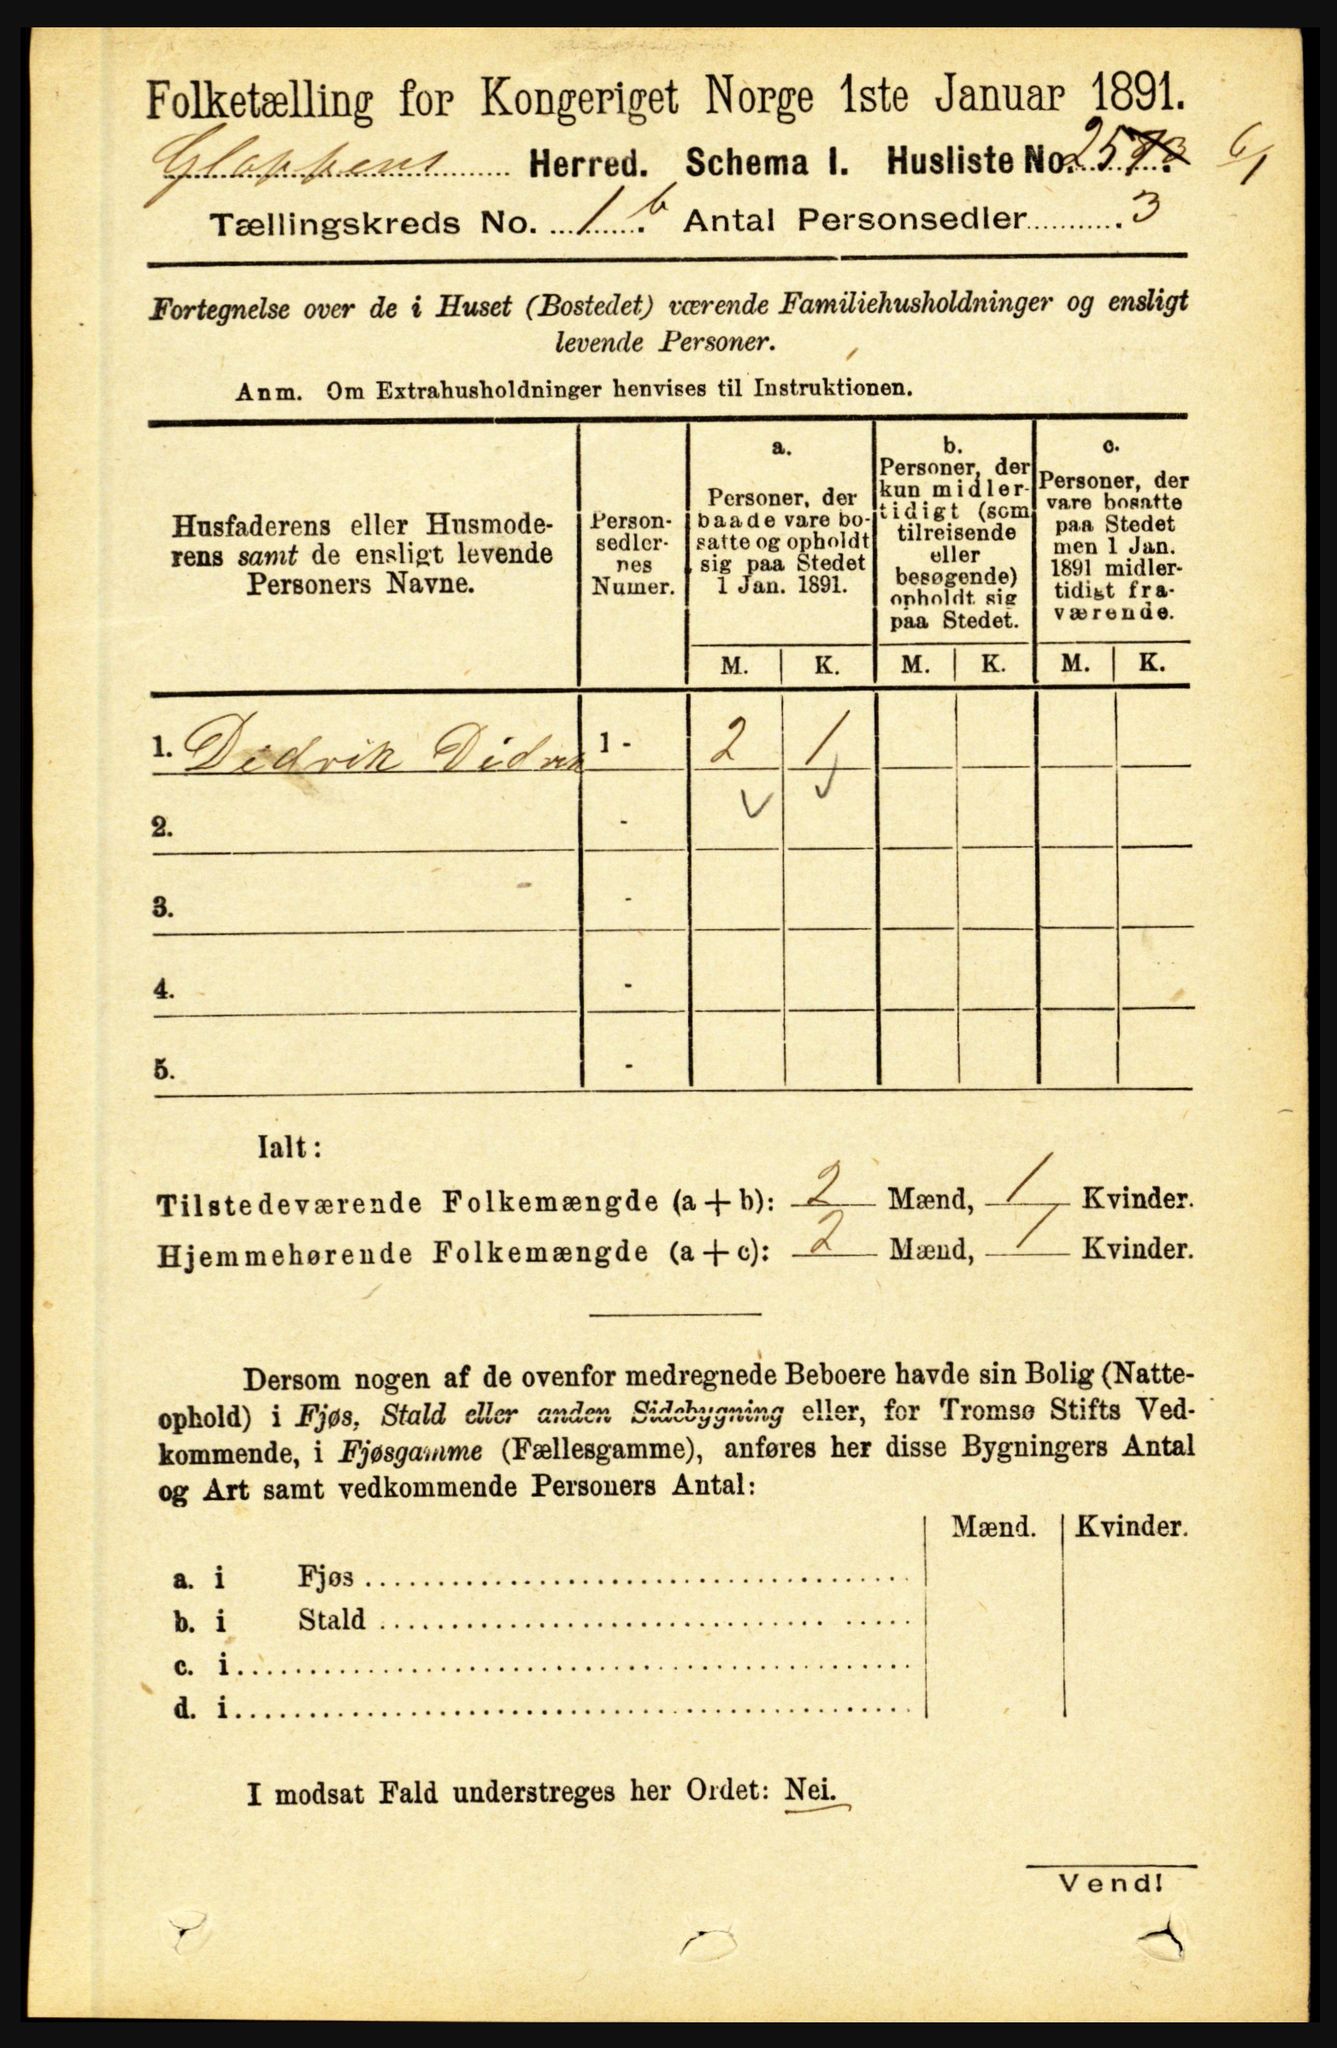 Folketælling for Kongeriget Norge 1ste Januar 1891.
Gloppens Herred. Schema I. Husliste No. 25
Tællingskreds No. 1 b. Antal Personsedler 3
Fortegnelse over de i Huset (Bostedet) værende Familiehusholdninger og ensligt
levende Personer.
Anm. Om Extrahusholdninger henvises til Instruktionen.
Husfaderens eller Husmode-
rens samt de ensligt levende
Personers Navne.
Person-
sedler-
nes
Numer.
a.
Personer, der
baade vare bo-
satte og opholdt
sig paa Stedet
1 Jan. 1891.
b.
Personer, der
kun midler-
tidigt (som
tilreisende
eller
besøgende)
opholdt sig
paa Stedet.
c.
Personer, der
vare bosatte
paa Stedet
men 1 Jan.
1891 midler-
tidigt fra-
værende.
M. K. M. K. M. K.
1. Didrik Didrik 1 - 2 1
2. -
3. -
4. -
5. -
Ialt:
Tilstedeværende Folkemængde (a + b): 2 Mænd, 1 Kvinder.
Hjemmehørende Folkemængde (a + c): 2 Mænd, 1 Kvinder.
Dersom nogen af de ovenfor medregnede Beboere havde sin Bolig (Natte-
ophold) i Fjøs, Stald eller anden Sidebygning eller, for Tromsø Stifts Ved-
kommende, i Fjøsgamme (Fællesgamme), anføres her disse Bygningers Antal
og Art samt vedkommende Personers Antal:
Mænd. Kvinder.
a. i Fjøs
b. i Stald
c. i
d. i
I modsat Fald understreges her Ordet: Nei.
Vend!